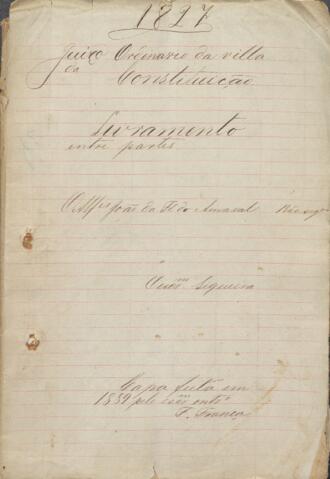 1827
Juizo Ordinario da villa
da Constituição
Livramento
entre partes
O Alfes João da Fl do Amaral
Escrm Siqueira
Capa feita em
1889 pelo escrm
F. França